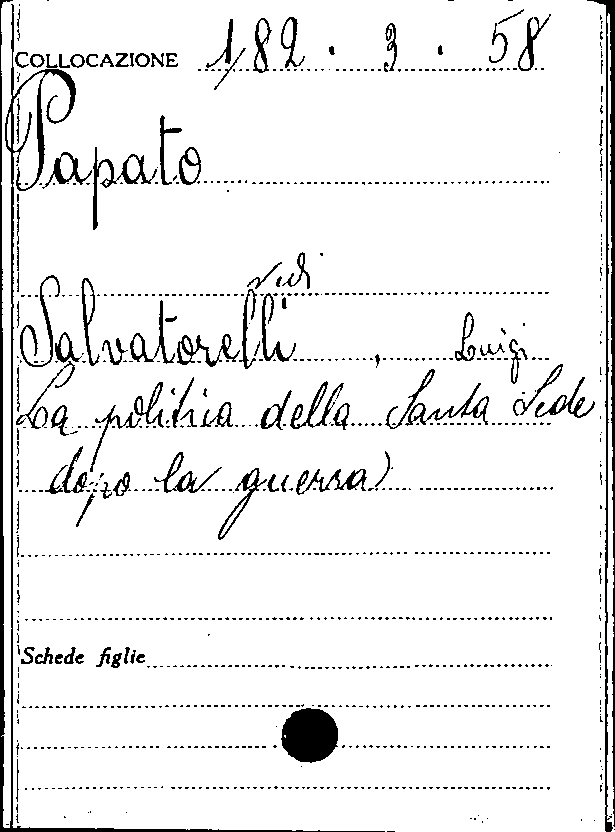 COLLOCAZIONE 182 . 3 . 58
Papato
vedi
Salvatorelli , Luigi
La politica della Santa Sede
dopo la guerra
Schede figlie